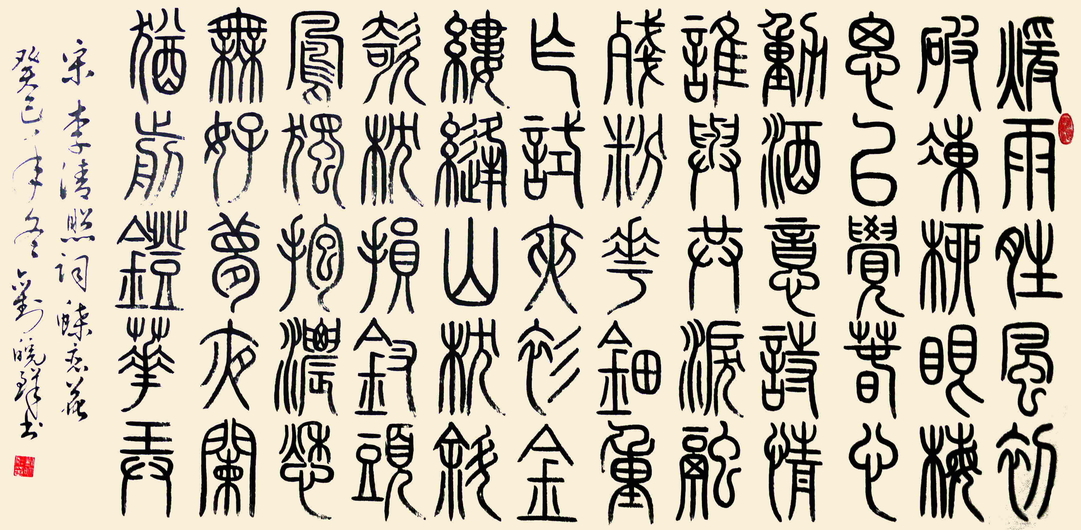 煖雨晴風初
破凍柳眼梅
思已覺春心
動酒意詩情
誰與共淚融
殘粉花鈿重
乍試夾衫金
縷縫山枕斜
欹枕損釵頭
鳳獨抱濃愁
無好夢夜闌
猶剪燈華弄
宋李清照詞蝶恋花
癸巳年冬劉曉書